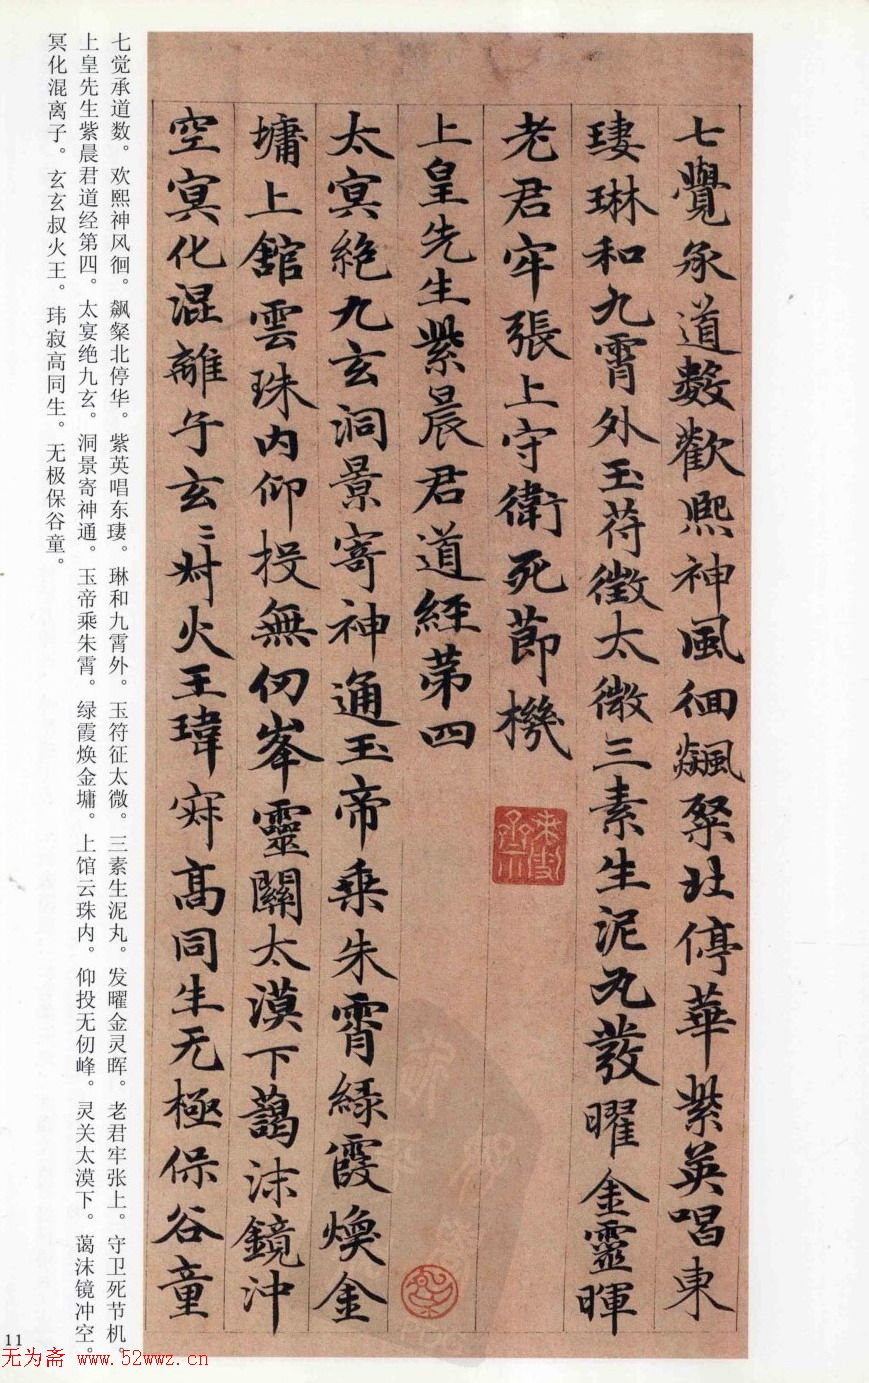 七覺承道數歡熙神風徊飆粲北停華紫英唱東
琫琳和九霄外玉苻徵太微三素生泥丸發曜金靈暉
老君牢張上守衛死節機
上皇先生紫晨君道經第四
太冥絶九玄洞景寄神通玉帝乗朱霄緑霞煥金
墉上舘雲珠内仰投無仞峯靈關太漠下藹沫鏡沖
空冥化混離子玄〻尗火王瑋寂高同生无極保谷童
七觉承道数。欢熙神风徊。飙粲北停华。紫英唱东琫。琳和九霄外。玉符征太微。三素生泥丸。发曜金灵晖。老君牢张上。守卫死节机。
上皇先生紫晨君道经第四。太宴绝九玄。洞景寄神通。玉帝乘朱霄。绿霞焕金墉。上馆云珠内。仰投无仞峰。灵关太漠下。蔼沫镜冲空。
冥化混离子。玄玄叔火王。玮寂高同生。无极保谷童。
11
无为斋 www.52wwz.cn